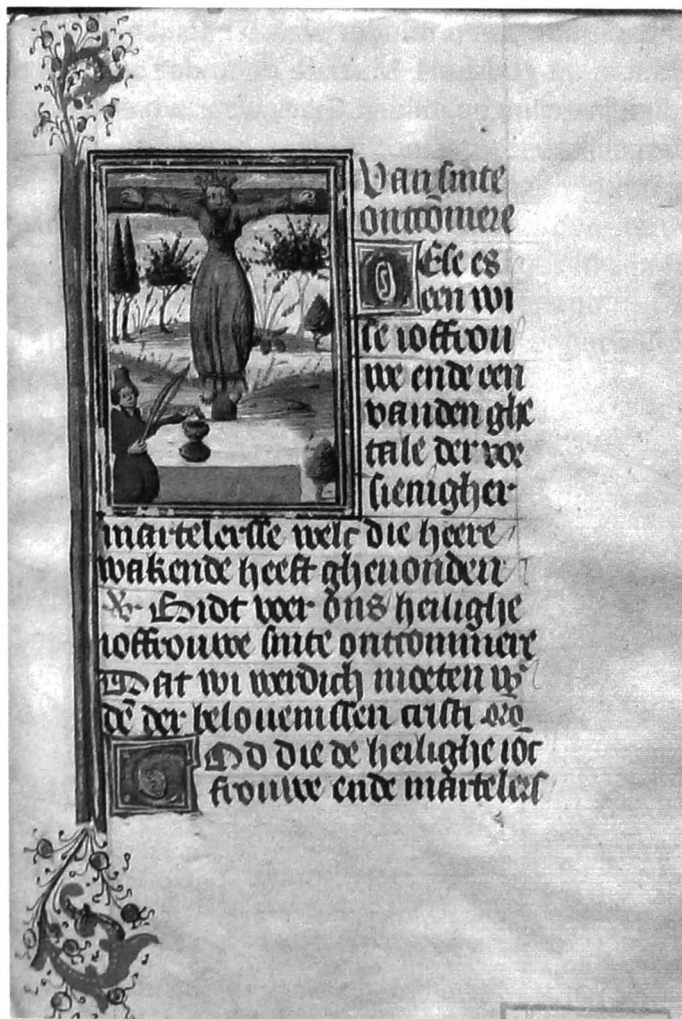 Van sinte
ontcōmere
DEse es
een wi
se ioffrou
we ende een
vanden ghe
tale der voe
sienigher
martelersse welc die heere
wakende heeft gheuonden
Bidt voer ons heilighe
ioffrouwe sinte ontcommere
Dat wi werdich moeten w
dē der belouenissen cristi orō
GOd die de heilighe iof
frouwe ende martelers